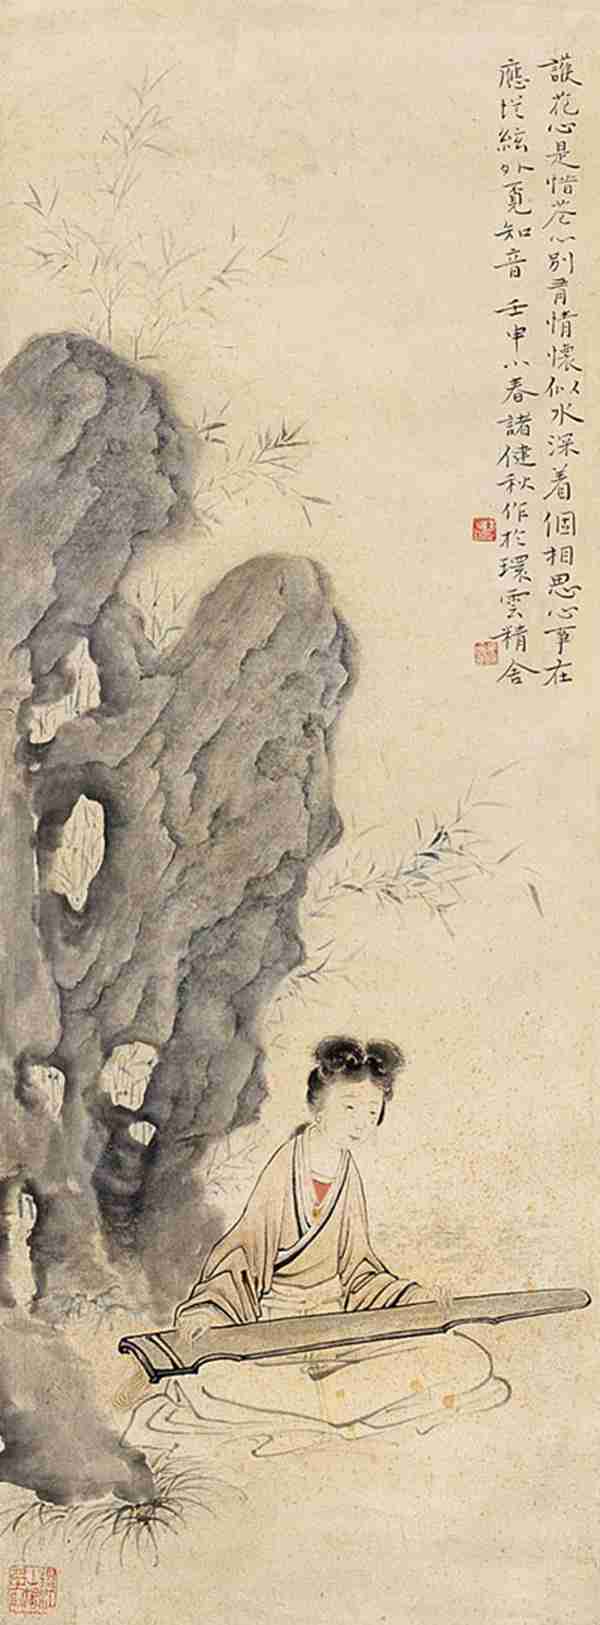 護花心是惜花心別有情懷似水深着個相思心事在
應從絃外覓知音 壬申小春諸健秋作於環雲精舍